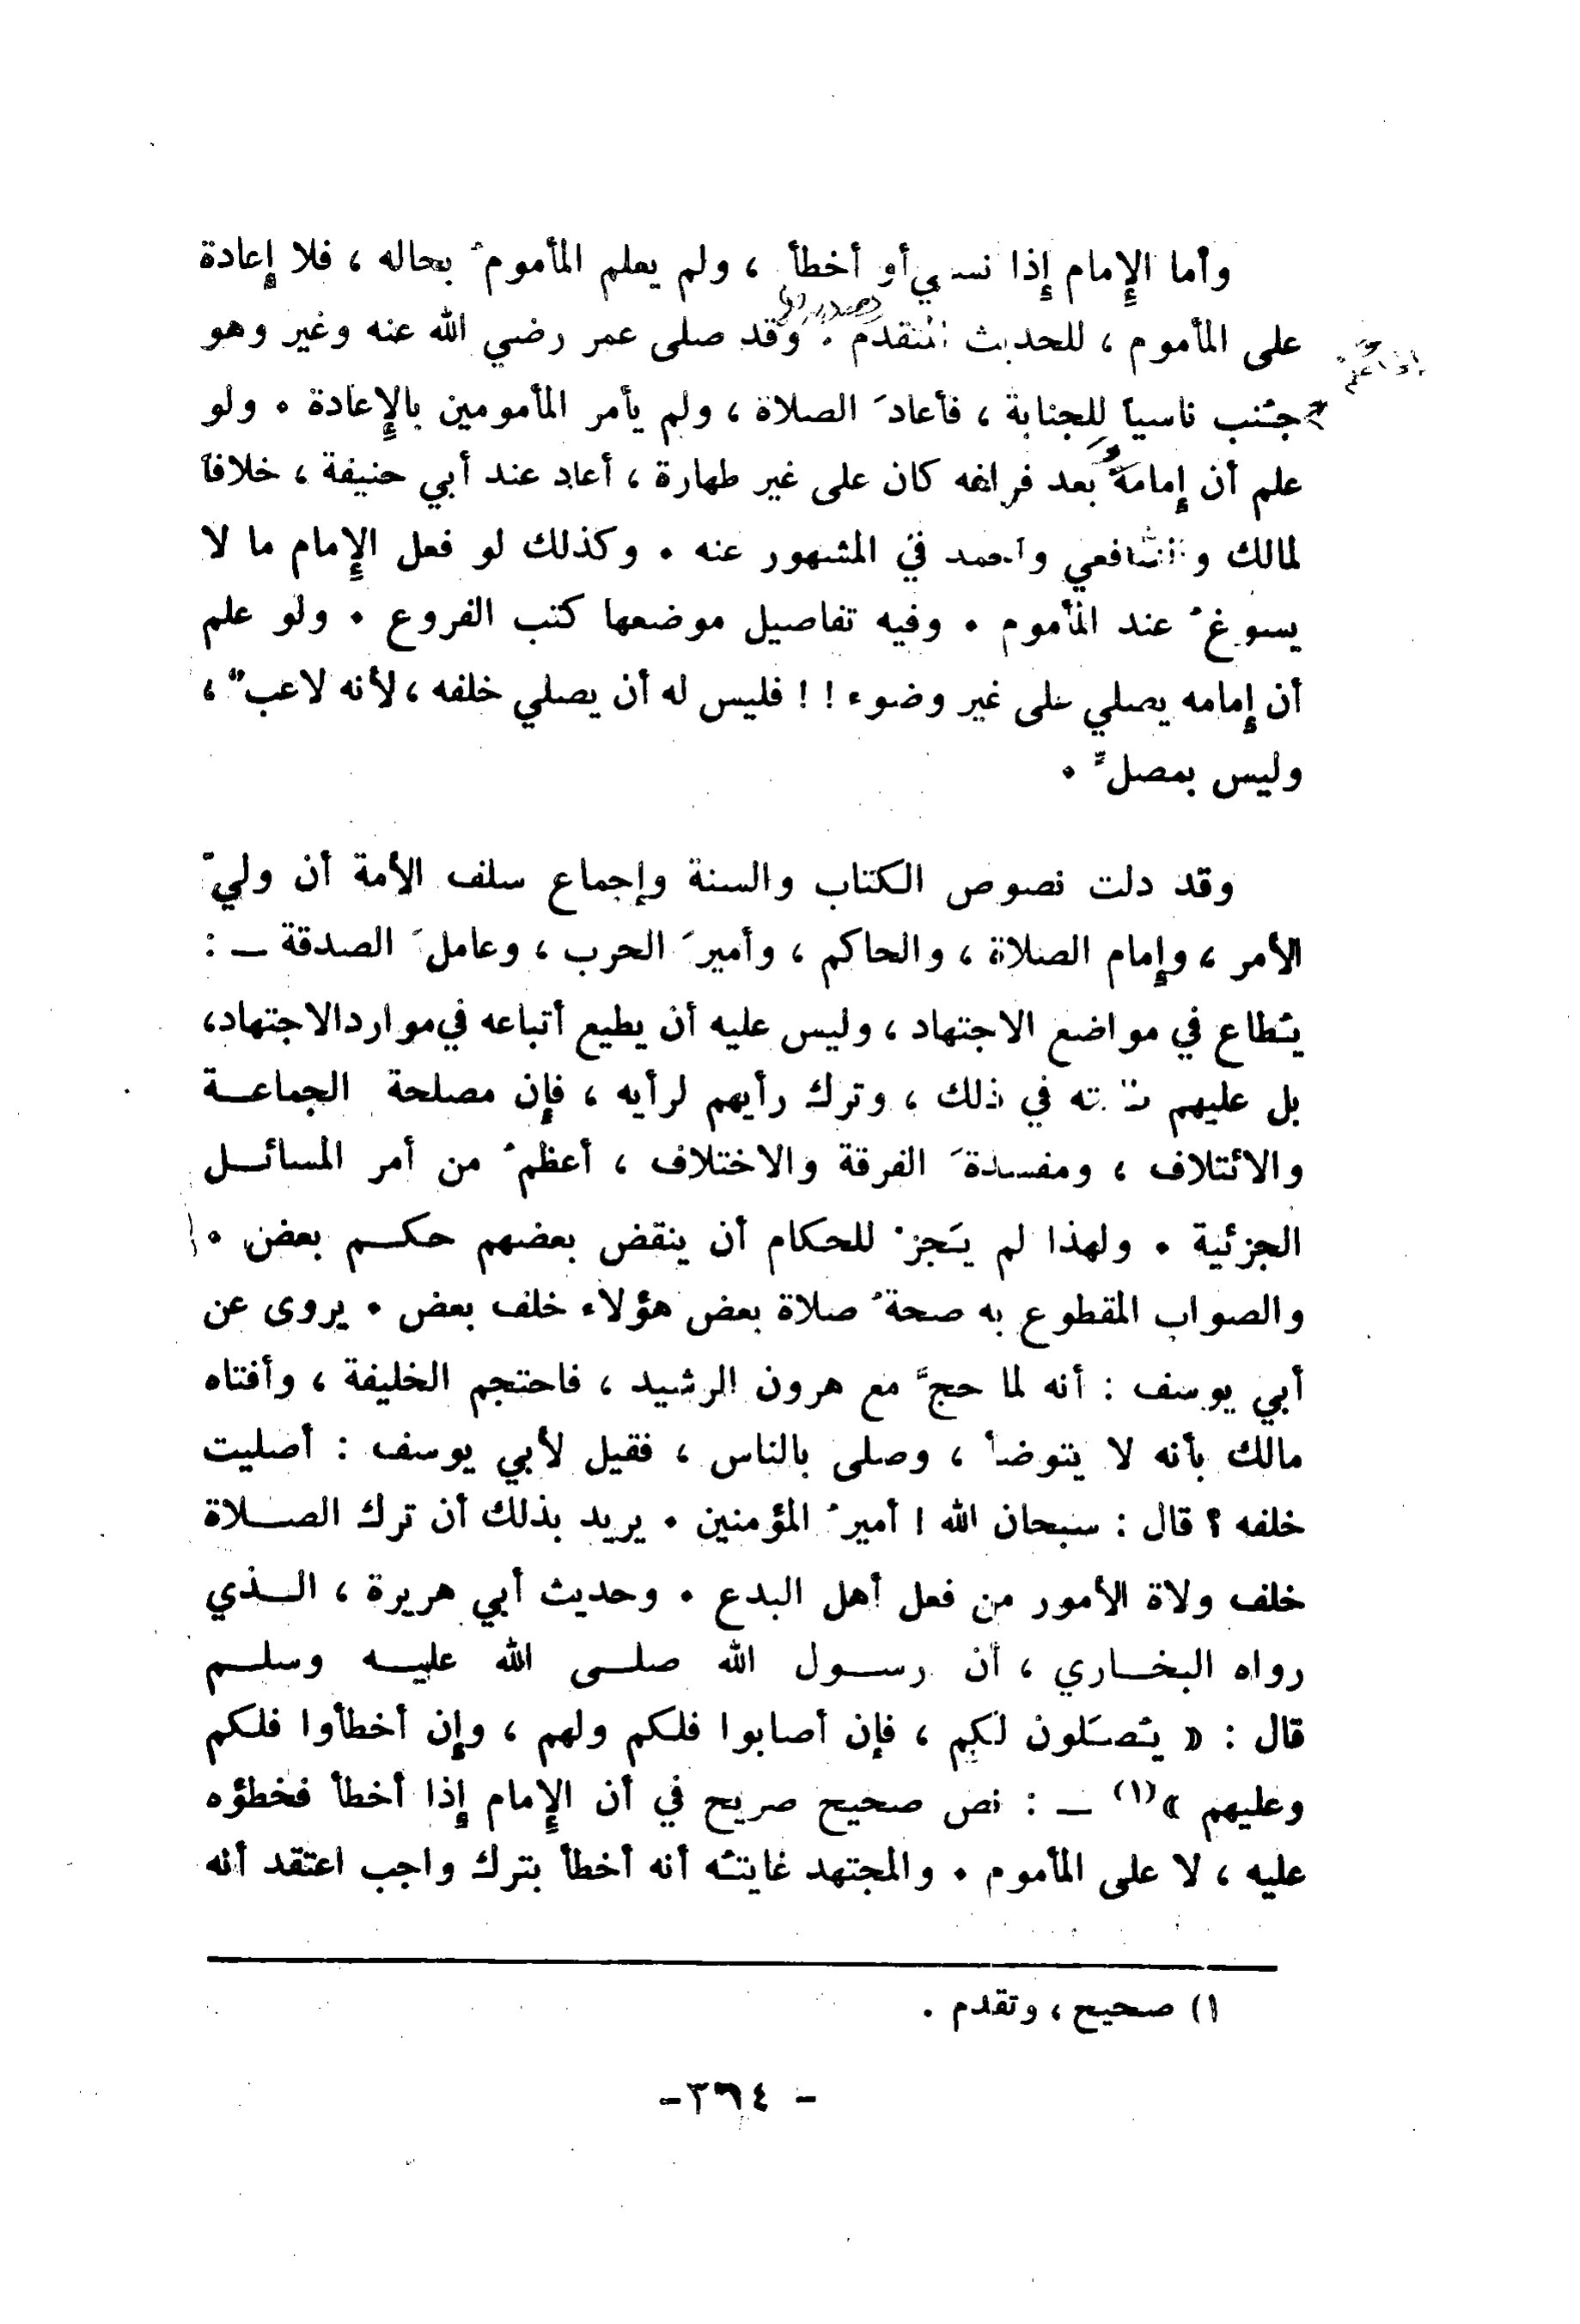 وأما الإمام إذا نسي أو أخطأ ، ولم يعلم المأمومُ بحاله ، فلا إعادة
على المأموم ، للحديث المتقدم . وقد صلى عمر رضي الله عنه وغير وهو
جُنب ناسياً للجنابة ، فأعادَ الصلاة ، ولم يأمر المأمومين بالإعادة . ولو
علم أن إمامَه بعد فراغه كان على غير طهارة ، أعاد عند أبي حنيفة ، خلافاً
لمالك والشافعي وأحمد في المشهور عنه . وكذلك لو فعل الإمام ما لا
يسوغُ عند المأموم . وفيه تفاصيل موضعها كتب الفروع . ولو علم
أن إمامه يصلي على غير وضوء ! ! فليس له أن يصلي خلفه ، لأنه لاعبٌ ،
وليس بمصلٍّ .
وقد دلت نصوص الكتاب والسنة وإجماع سلف الأمة أن وليّ
الأمر ، وإمام الصلاة ، والحاكم ، وأميرَ الحرب ، وعاملَ الصدقة – :
يُطاع في مواضع الاجتهاد ، وليس عليه أن يطيع أتباعه في موارد الاجتهاد،
بل عليهم في ذلك ، وترك رأيهم لرأيه ، فإن مصلحة الجماعة
والائتلاف ، ومفسدةَ الفرقة والاختلاف ، أعظمُ من أمر المسائل
الجزئية . ولهذا لم يَجزْ للحكام أن ينقض بعضهم حكم بعض .
والصواب المقطوع به صحةُ صلاة بعض هؤلاء خلف بعض . يروى عن
أبي يوسف : أنه لما حجَّ مع هرون الرشيد ، فاحتجم الخليفة ، وأفتاه
مالك بأنه لا يتوضأ ، وصلى بالناس ، فقيل لأبي يوسف : أصليت
خلفه ؟ قال : سبحان الله ! أميرُ المؤمنين . يريد بذلك أن ترك الصلاة
خلف ولاة الأمور من فعل أهل البدع . وحديث أبي هريرة ، الذي
رواه البخاري ، أن رسول الله صلى الله عليه وسلم
قال : « يُصَلون لكم ، فإن أصابوا فلكم ولهم ، وإن أخطأوا فلكم
وعليهم »(١) – : نص صحيح صريح في أن الإمام إذا أخطأ فخطؤه
عليه ، لا على المأموم . والمجتهد غايتُه أنه أخطأ بترك واجب اعتقد أنه
١) صحيح ، وتقدم .
- ٣٦٤-